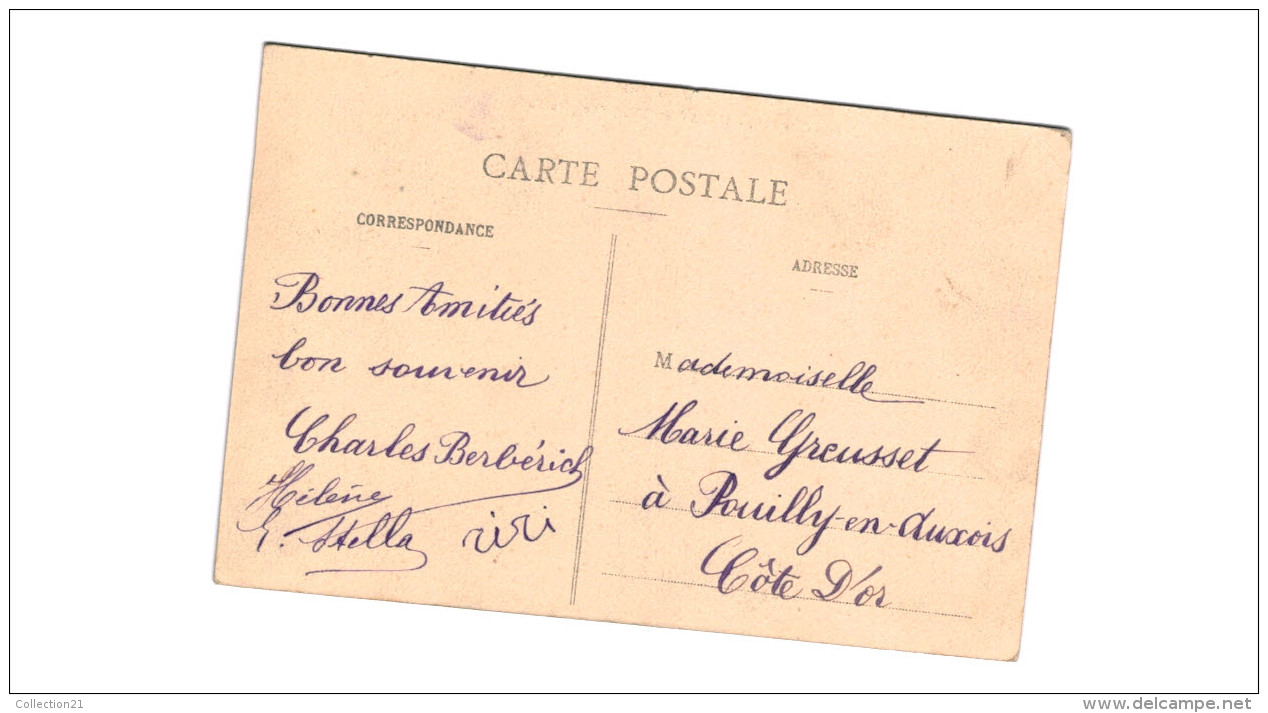 CARTE POSTALE
CORRESPONDANCE
Bonnes Amitiés
bon souvenir
Charles Berbérich
Hélène
E. Stella riri
ADRESSE
Mademoiselle
Marie Greusset
à Pouilly-en-Auxois
Côte D'or
Collection21
www.delcampe.net